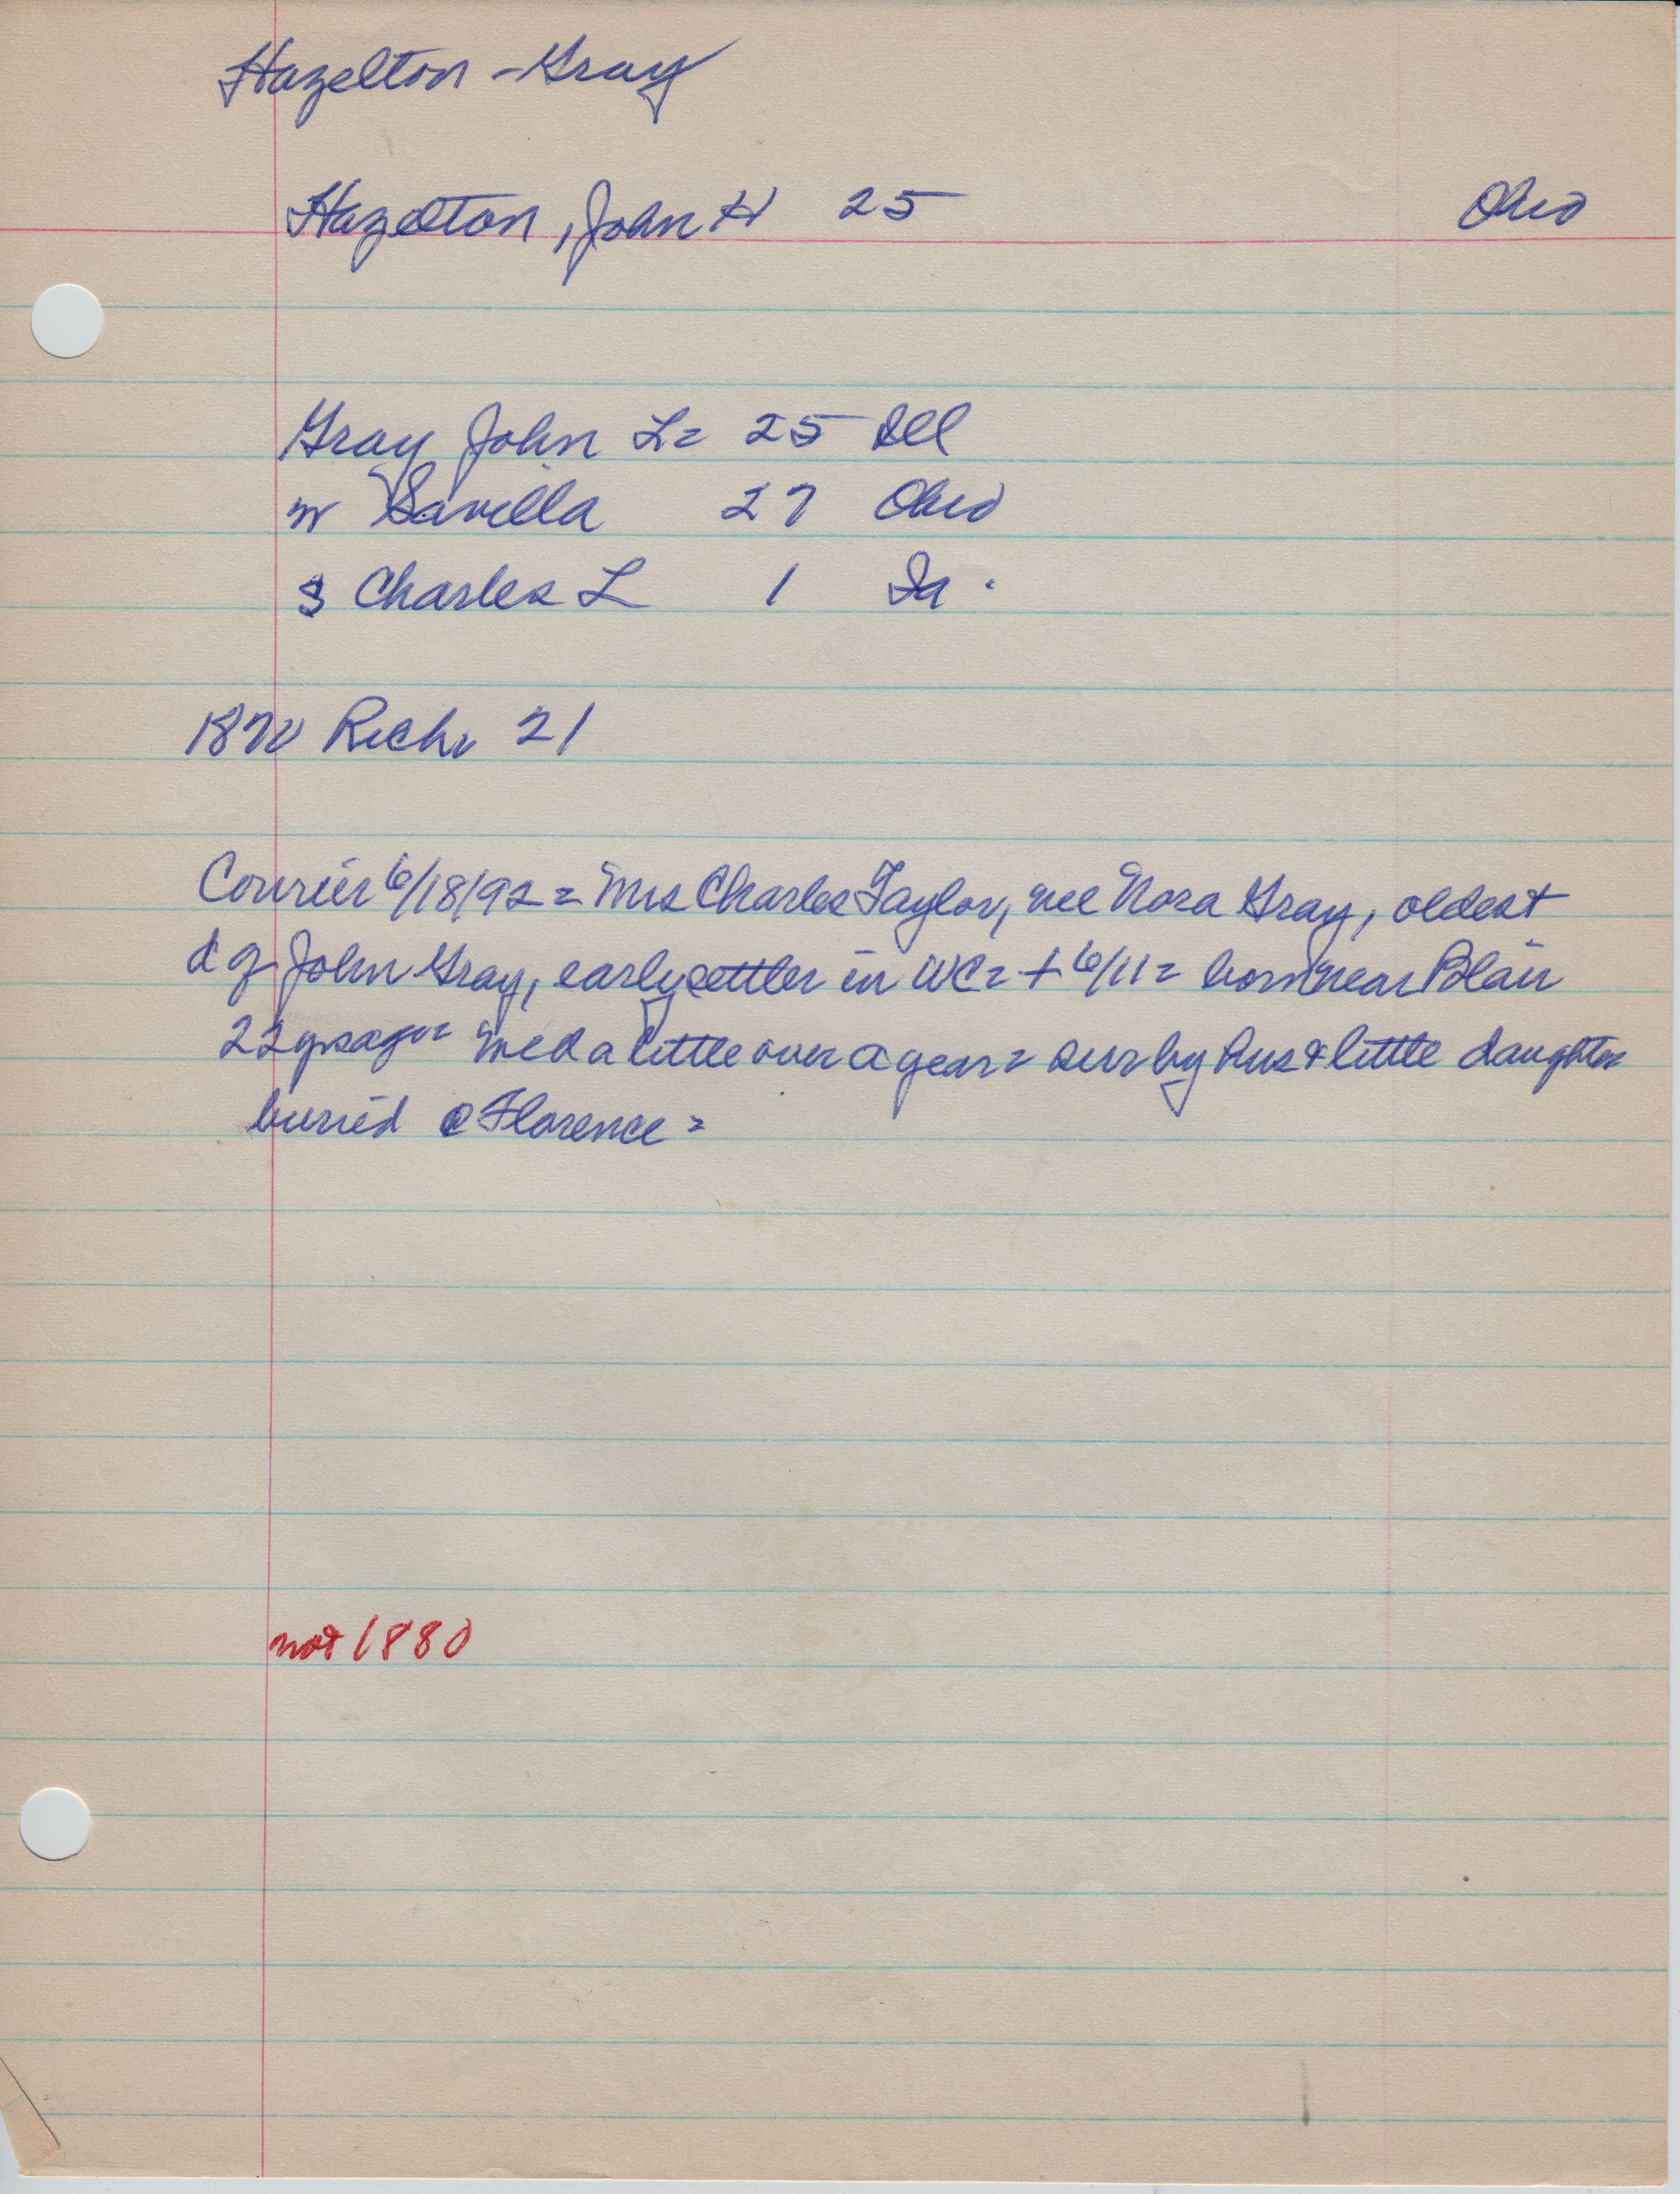 Hazelton - Gray
Hazelton, John H 25 Ohio
Gray John L= 25 Ill
w Savilla 27 Ohio
s Charles L 1 Ia.
1870 Rich 21
Courier 6/18/92 = Mrs Charles Taylor, nee Nora Gray, oldest
d of John Gray, early settler in WC= + 6/11= born near Blair
22 yrs ago= med a little over a year= sur by hus & little daughter
buried @ Florence =
not 1880